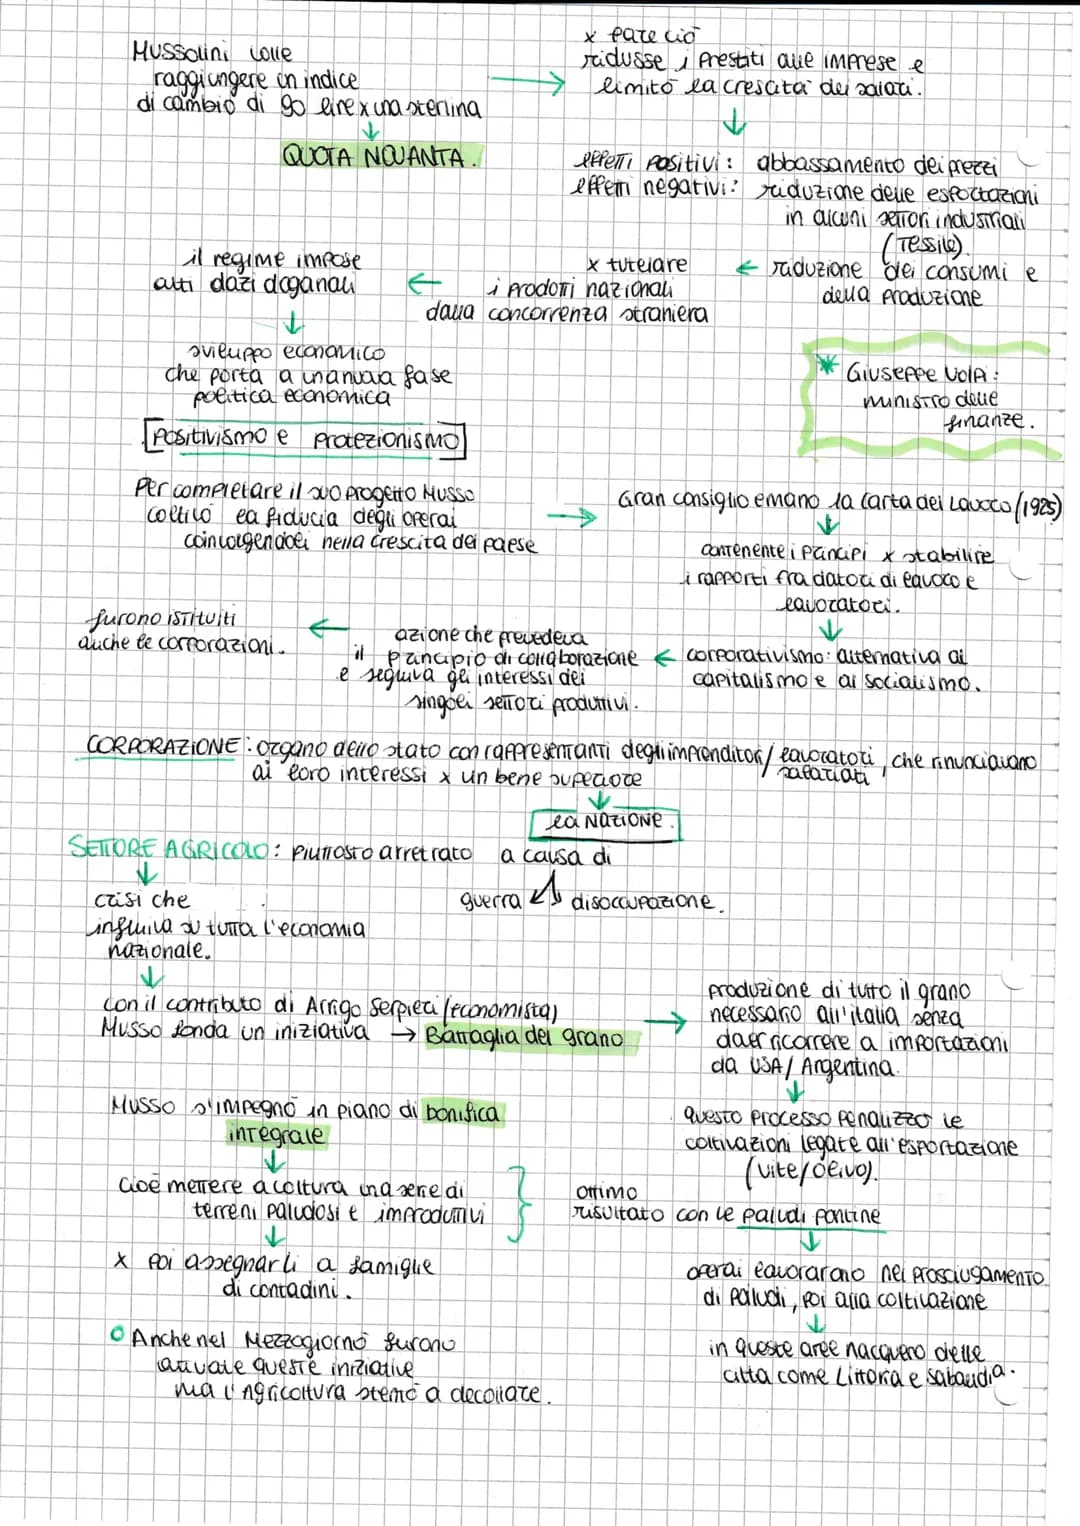 Mussolini volle
raggiungere un indice
di cambio di 90 lire x una sterlina
QUOTA NOVANTA.
x fare ciò
ridusse i prestiti alle imprese e
limitò la crescita dei salari.
effetti positivi: abbassamento dei prezzi
effetti negativi: riduzione delle esportazioni
in alcuni settori industriali
(tessile)
riduzione dei consumi e
della produzione
x tutelare
i prodotti nazionali
dalla concorrenza straniera
il regime impose
alti dazi doganali
sviluppo economico
che porta a una nuova fase
politica economica
Positivismo e Protezionismo
* Giuseppe Volpi:
ministro delle
finanze.
Per completare il suo progetto Musso
coltivò la fiducia degli operai
coinvolgendoli nella crescita del paese
Gran consiglio emanò la carta del Lavoro (1925)
contenente i principi x stabilire
i rapporti fra datori di lavoro e
lavoratori.
corporativismo: alternativa al
capitalismo e al socialismo.
azione che prevedeva
il principio di collaborazione
e seguiva gli interessi dei
singoli settori produttivi.
furono istituiti
anche le corporazioni.
CORPORAZIONE: organo dello stato con rappresentanti degli imprenditori/ lavoratori, che rinunciavano
salariati
ai loro interessi x un bene superiore
la NAZIONE.
SETTORE AGRICOLO: piuttosto arretrato a causa di
guerra disoccupazione.
crisi che
influiva su tutta l'economia
nazionale.
con il contributo di Arrigo Serpieri (economista)
Musso fonda un iniziativa → Battaglia del grano
produzione di tutto il grano
necessario all'italia senza
dover ricorrere a importazioni
da USA/ Argentina.
questo processo penalizzò le
coltivazioni legate all'esportazione
(vite/olivo).
Musso s'impegnò in piano di bonifica
integrale
cioè mettere a coltura una serie di
terreni paludosi e improduttivi
x poi assegnarli a famiglie
di contadini.
ottimo
risultato con le paludi pontine
operai lavorarono nel prosciugamento
di paludi, poi alla coltivazione
in queste aree nacquero delle
città come Littoria e Sabaudia.
Anche nel Mezzogiorno furono
attivate queste iniziative
ma l'agricoltura stentò a decollare.